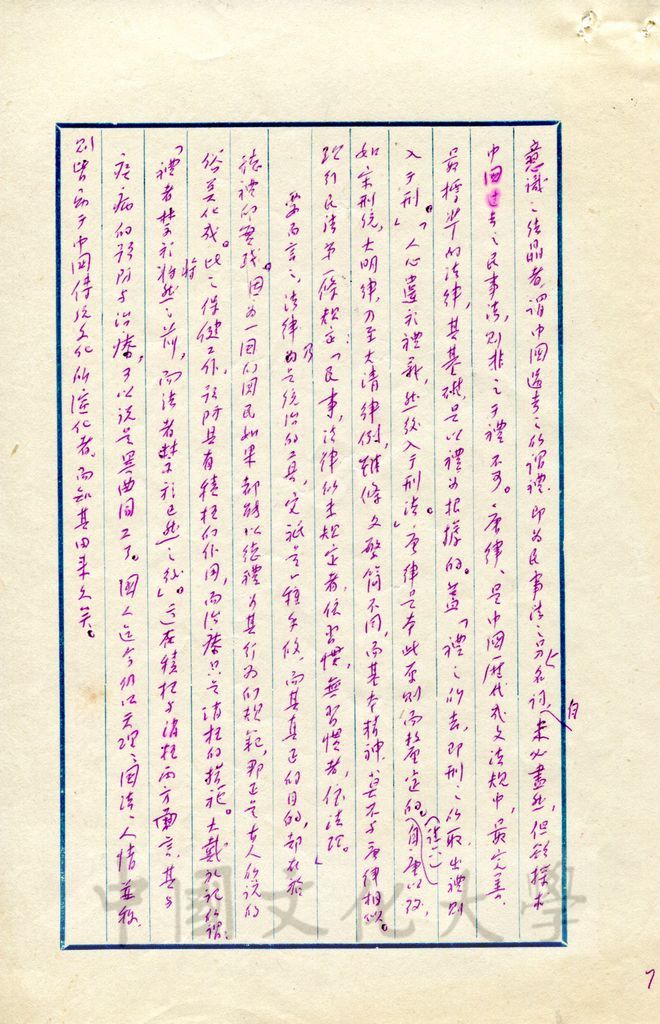 意識之結晶者,謂中國過去之所謂禮,即為民事法之別名詞,自未必盡然,但欲探求
中國过去之民事法,則非之于禮不可。唐律、是中國歷代成文法規中,最完善.
最標準的法律,其基礎是以禮為根據的。蓋「禮之所去,即刑之所取,出禮則
入于刑」。「人心違於禮義,然後入于刑法」。唐律是本此原則而釐定的。(註六)自唐以後,
如宋刑統,大明律,乃至大清律例,雖條文繁簡不同,而基本精神,莫不與唐律相似。
現行民法第一條規定:「民事,法律所未規定者,依習慣,無習慣者,依法理。」
要而言之,法律乃是統治的工具,它祇是一種手段,而其真正的目的,却在於
德禮的實踐。因為一國的國民如果都能以德禮為其行為的規範,那正是古人所說的
俗美化成。此之保健工作,預防具有積極的作用,而治療只是消極的措施。大戴禮記所謂:
「禮者禁於將然之前,而法者禁於已然之後」。這在積極与消極兩方面言,其与
疾病的預防与治療,可以說是異曲同工了。國人迄今仍以天理、國法、人情並稱,
則皆為于中國傳統文化所演化者,而知其由来久矣。
7
中國文化大學